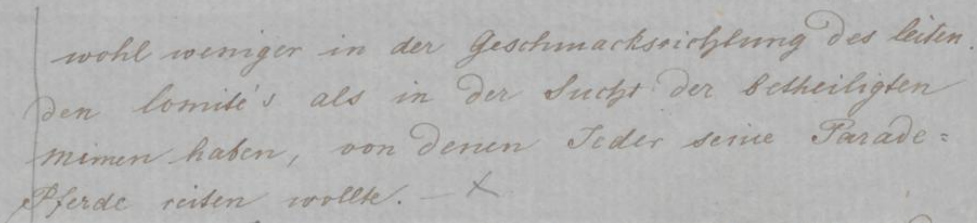 wohl weniger in der Geschmacksrichtung des leiten-
den Comité's als in der Sucht der betheiligten
Mimen haben, von denen Jeder seine Parade=
Pferde reiten wollte. — X